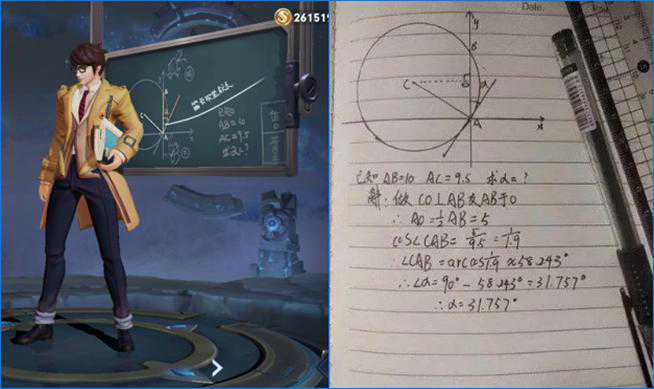 261519
B
C
A
AB=10
AC=9.5
求α?
Date.
y
B
C
5
α
A
x
已知 AB=10 AC=9.5 求α=?
解: 做 CO⊥AB 交AB于O
∴ AO=½AB=5
cos∠CAB= 5/9.5 = 1/1.9
∴∠CAB=arccos 1/1.9 ≈58.243°
∴∠α=90°-58.243°=31.757°
∴α=31.757°